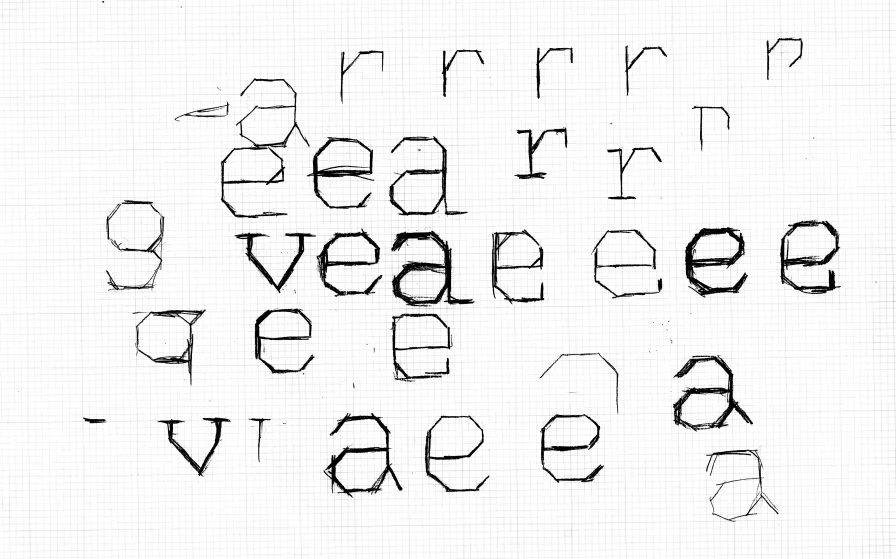 r r r r r
a
e e a r r r
g v e a e e e e
q e e
v a e e a
a